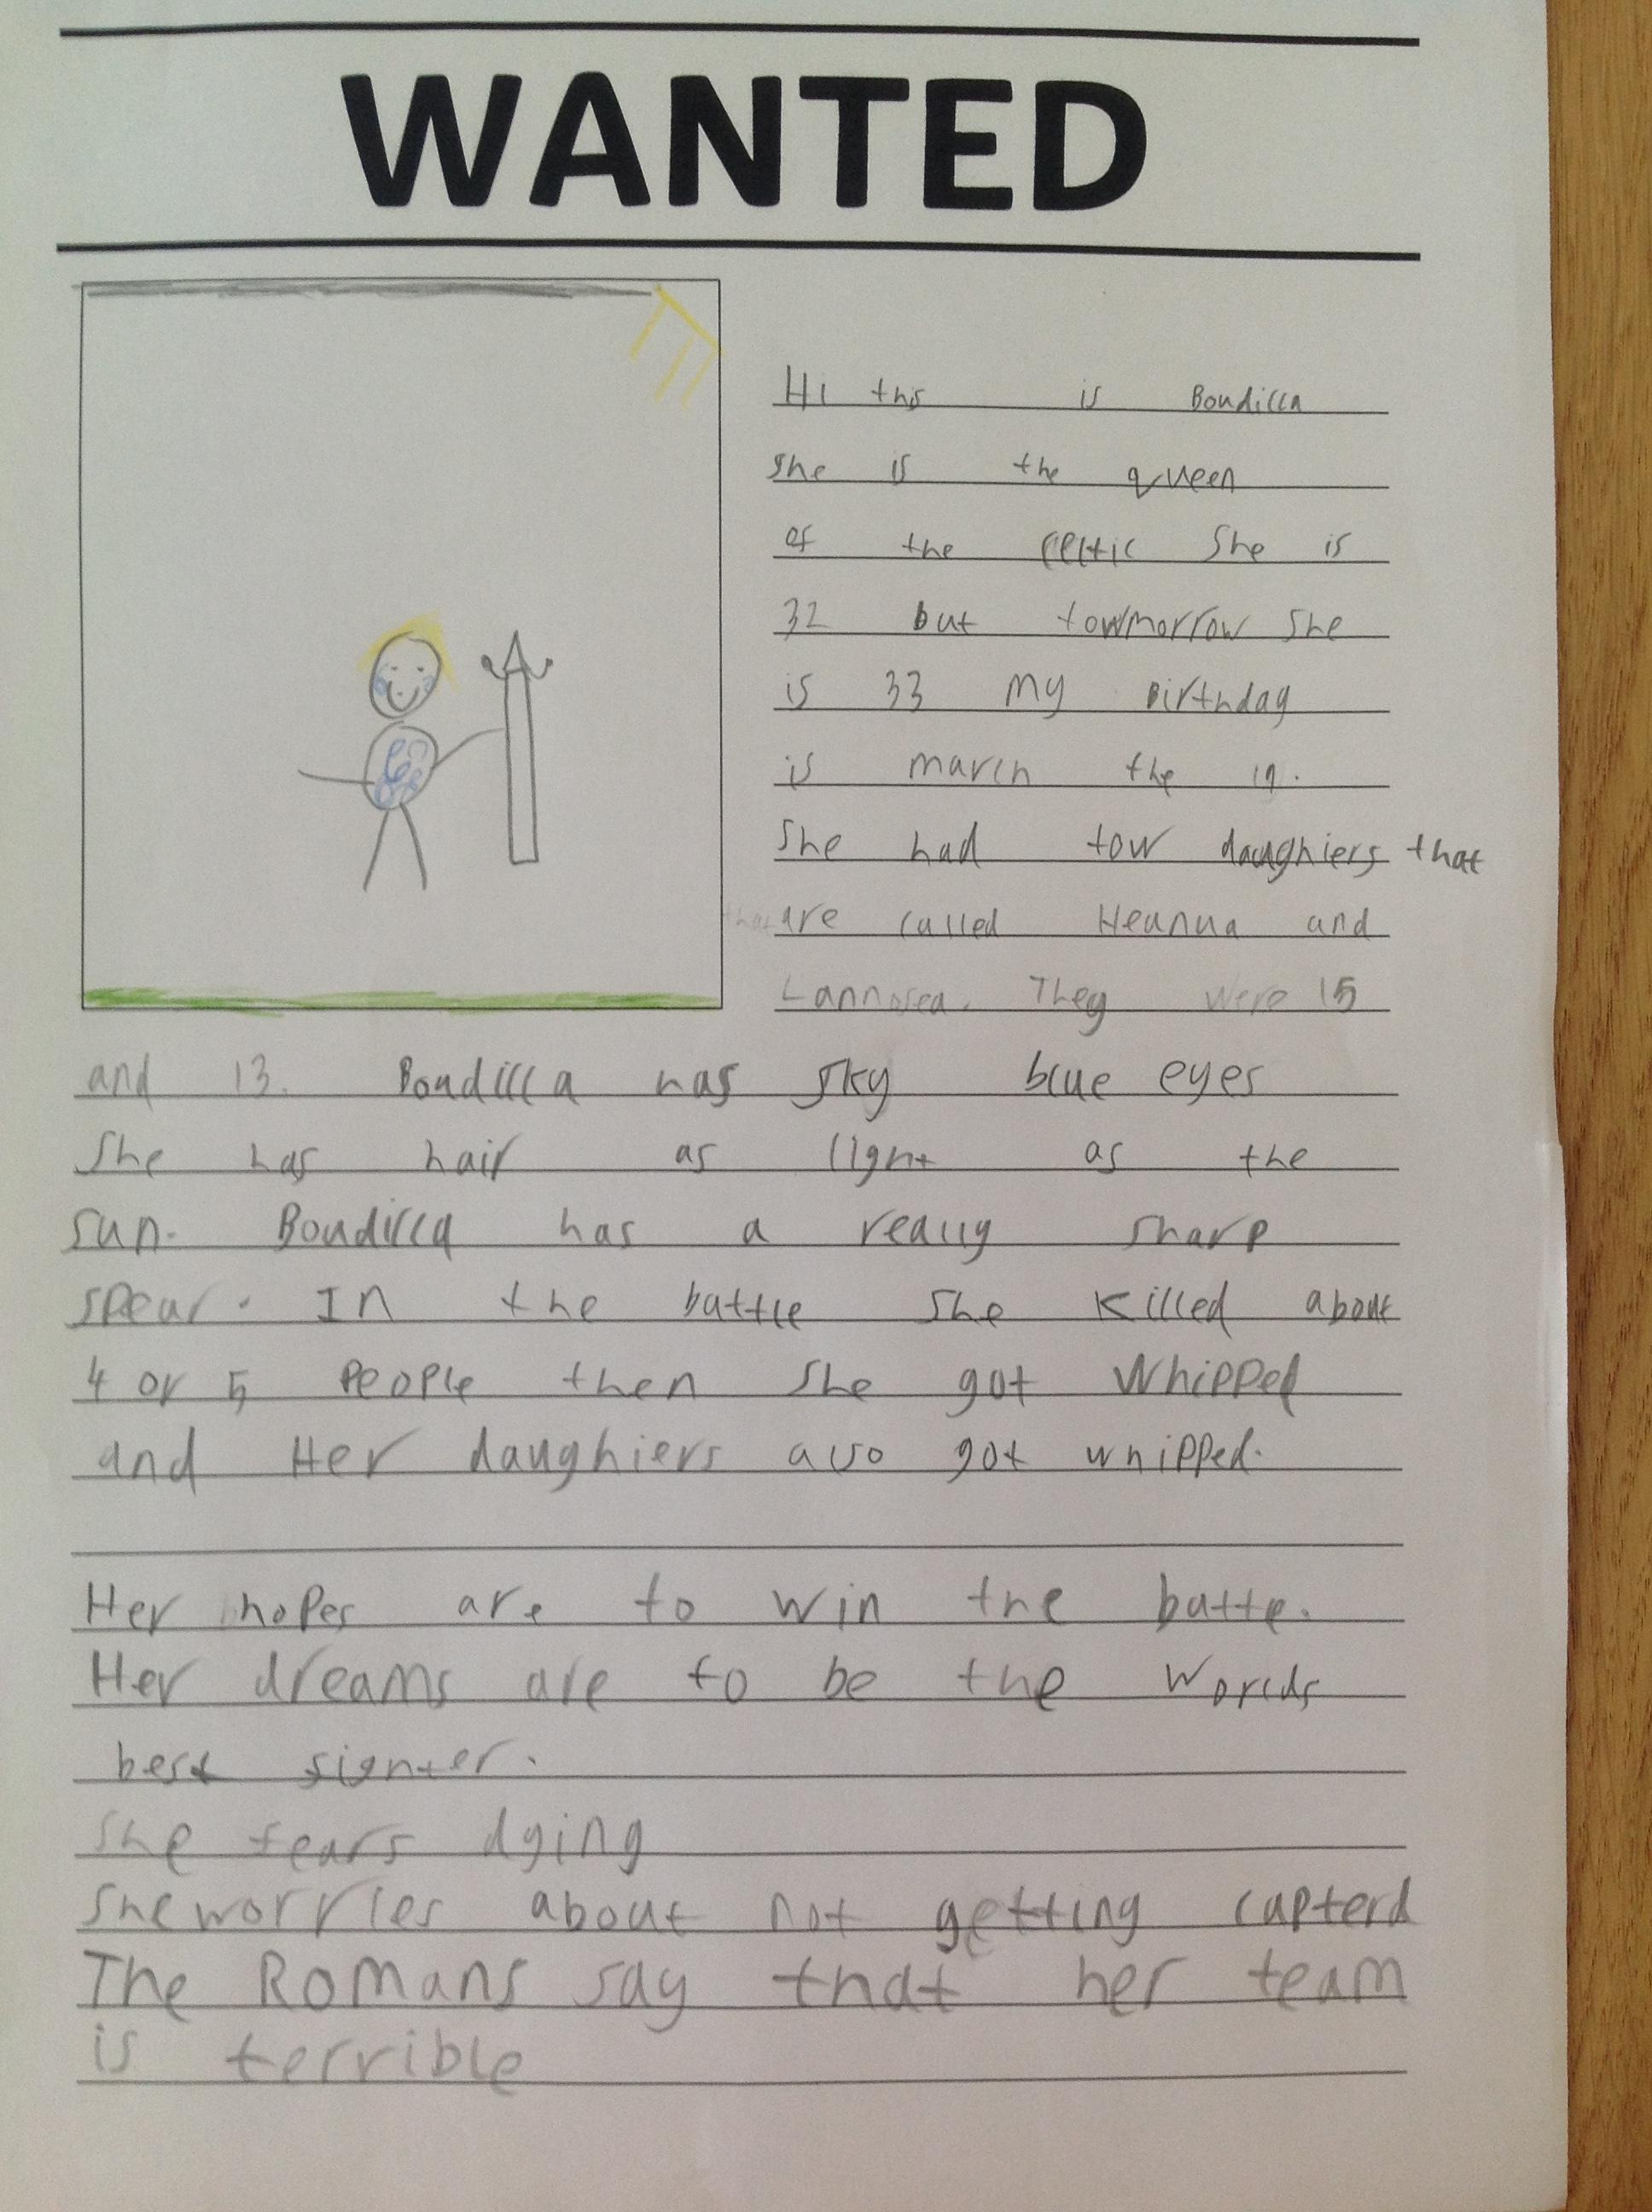 WANTED
Hi this is Boudicca
she is the queen
of the celtic She is
32 but towmorrow she
is 33 my Birthday
is march the 19.
She had tow daughters that
are called Heanua and
Lannosea. They were 15
and 13. Boudicca has sky blue eyes
She has hair as light as the
sun. Boudicca has a really sharp
spear. In the battle she killed about
4 or 5 people then she got whipped
and Her daughters also got whipped.
Her hopes are to win the batte.
Her dreams are to be the worlds
best fighter.
she fears dying
she worries about not getting capterd
The Romans say that her team
is terrible